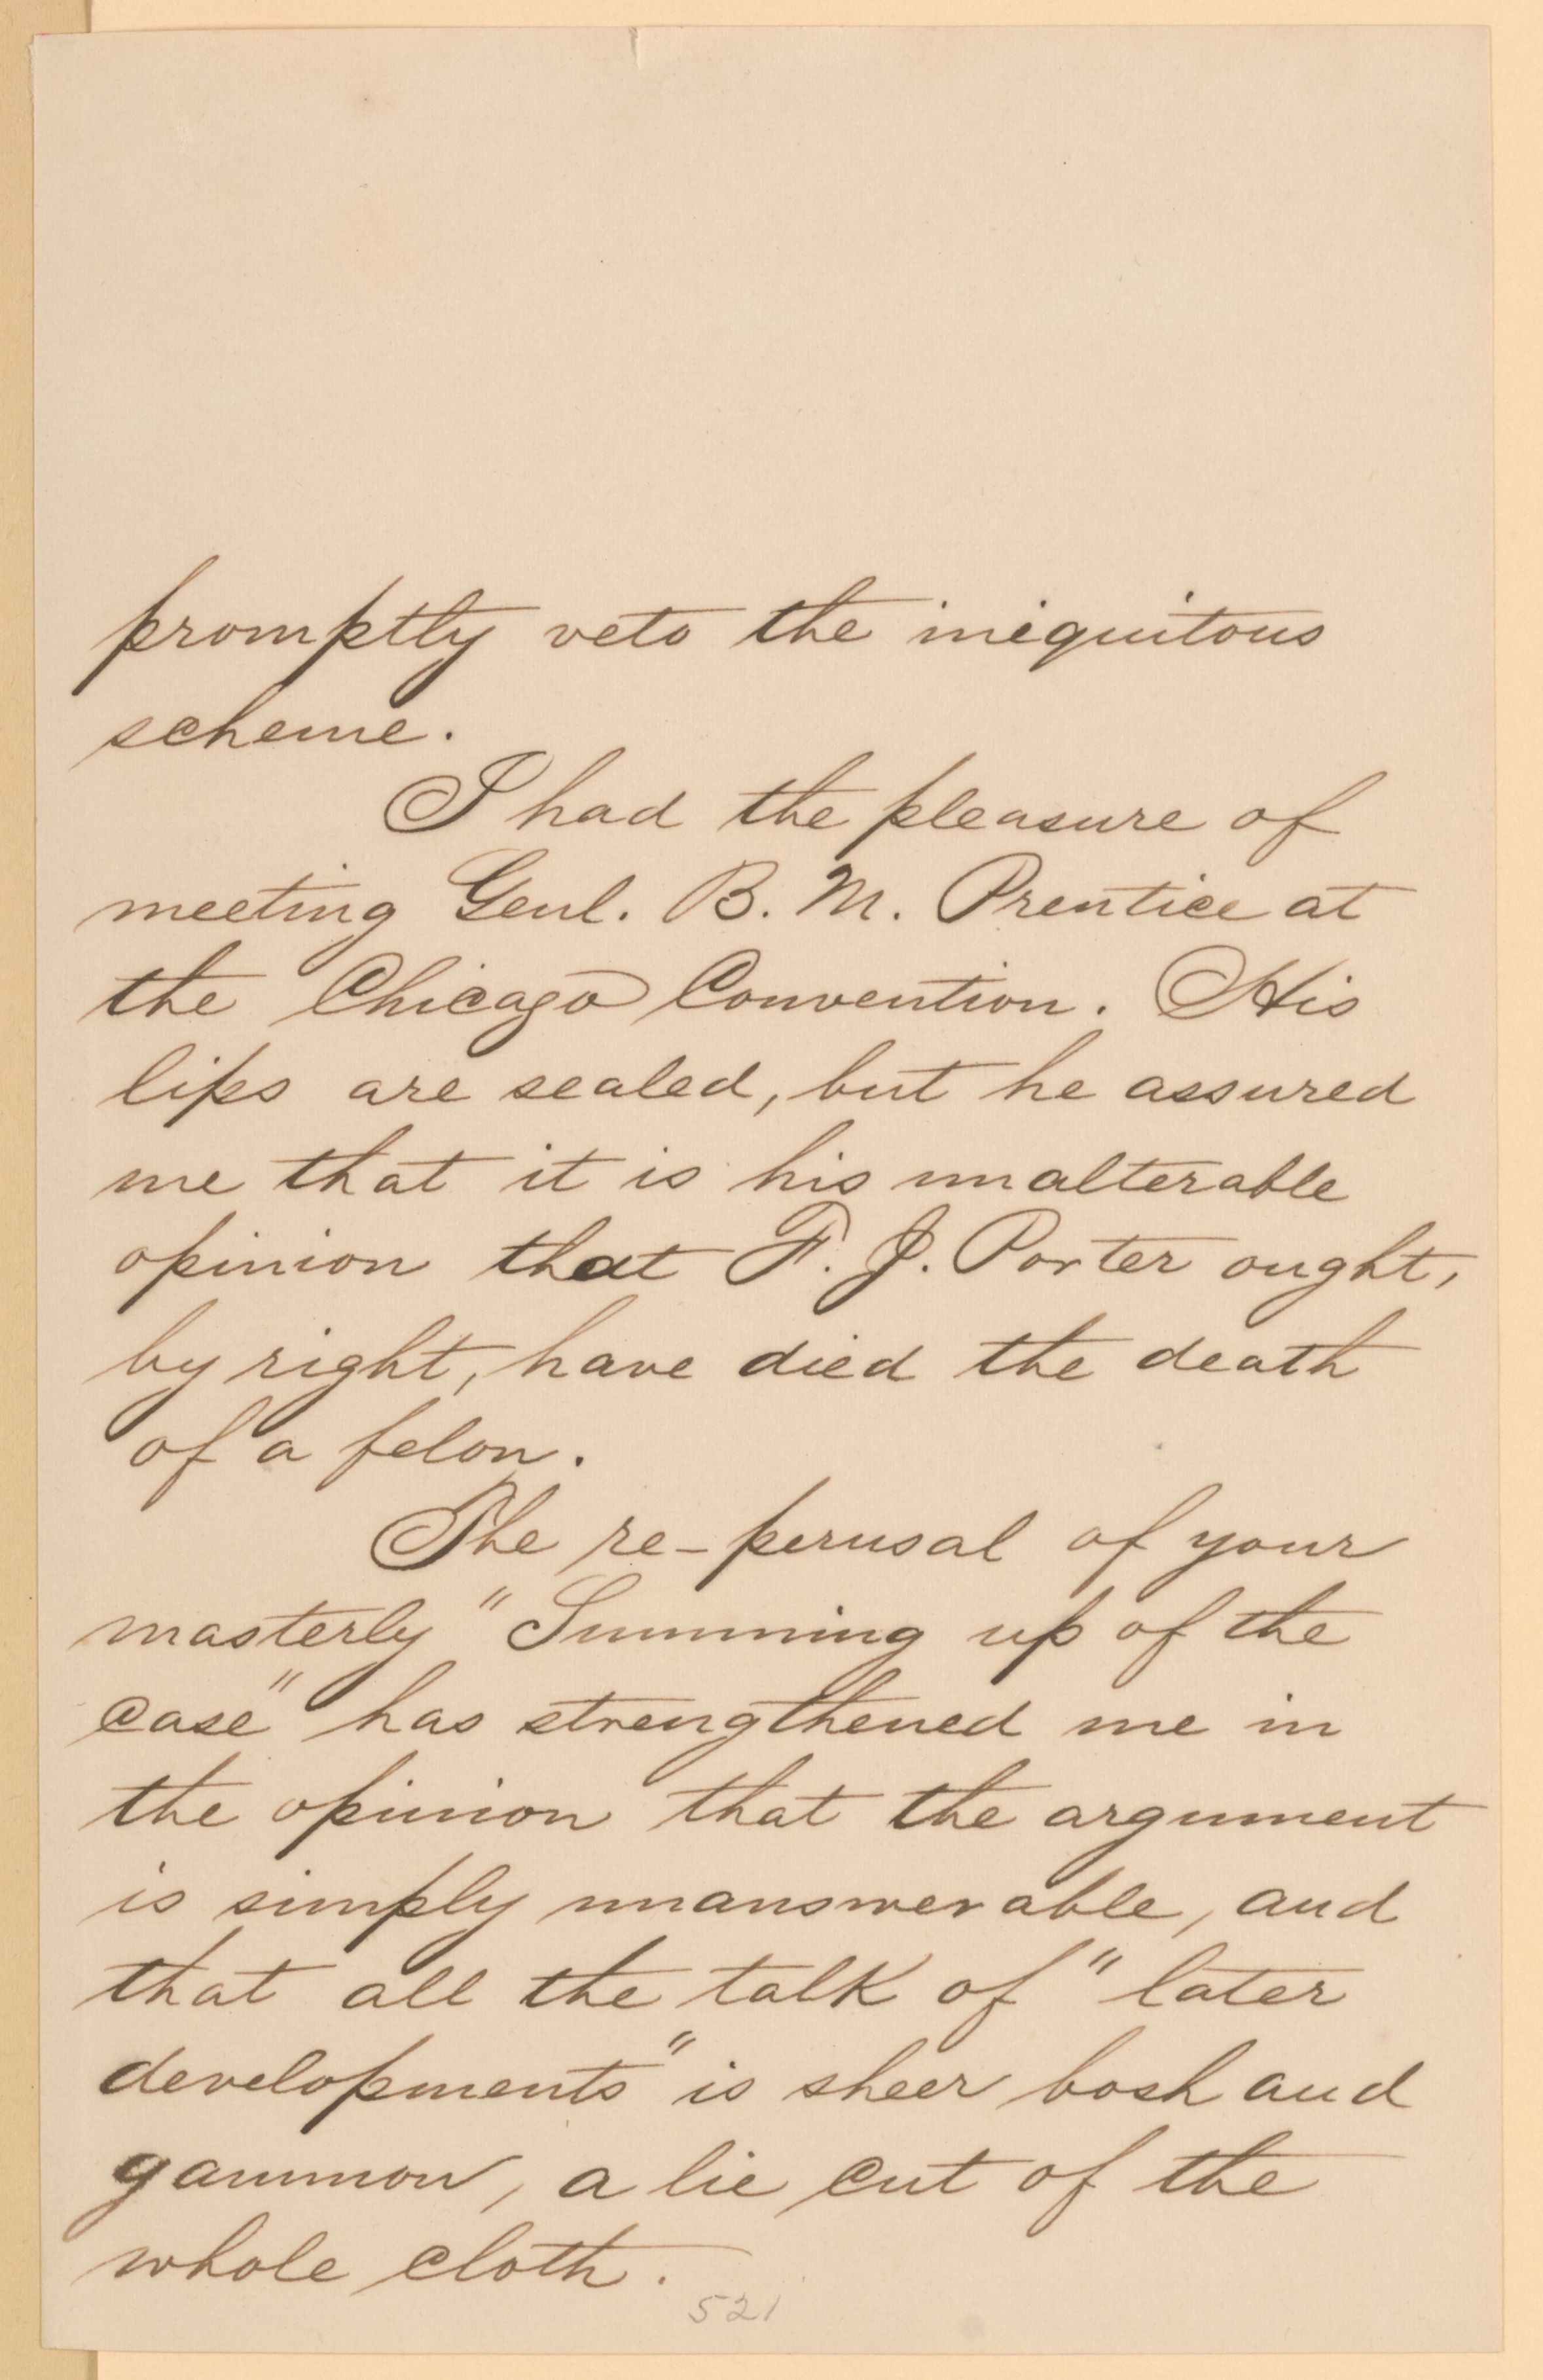 promptly veto the iniquitous
scheme.
I had the pleasure of
meeting Genl. B. M. Prentice at
the Chicago Convention. His
lips are sealed, but he assured
me that it is his unalterable
opinion that F. J. Porter ought,
by right, have died the death
of a felon.
The re-perusal of your
masterly "Summing up of the
case" has strengthened me in
the opinion that the argument
is simply unanswerable, and
that all the talk of "later
developments" is sheer bosh and
gammon, a lie cut of the
whole cloth.
521